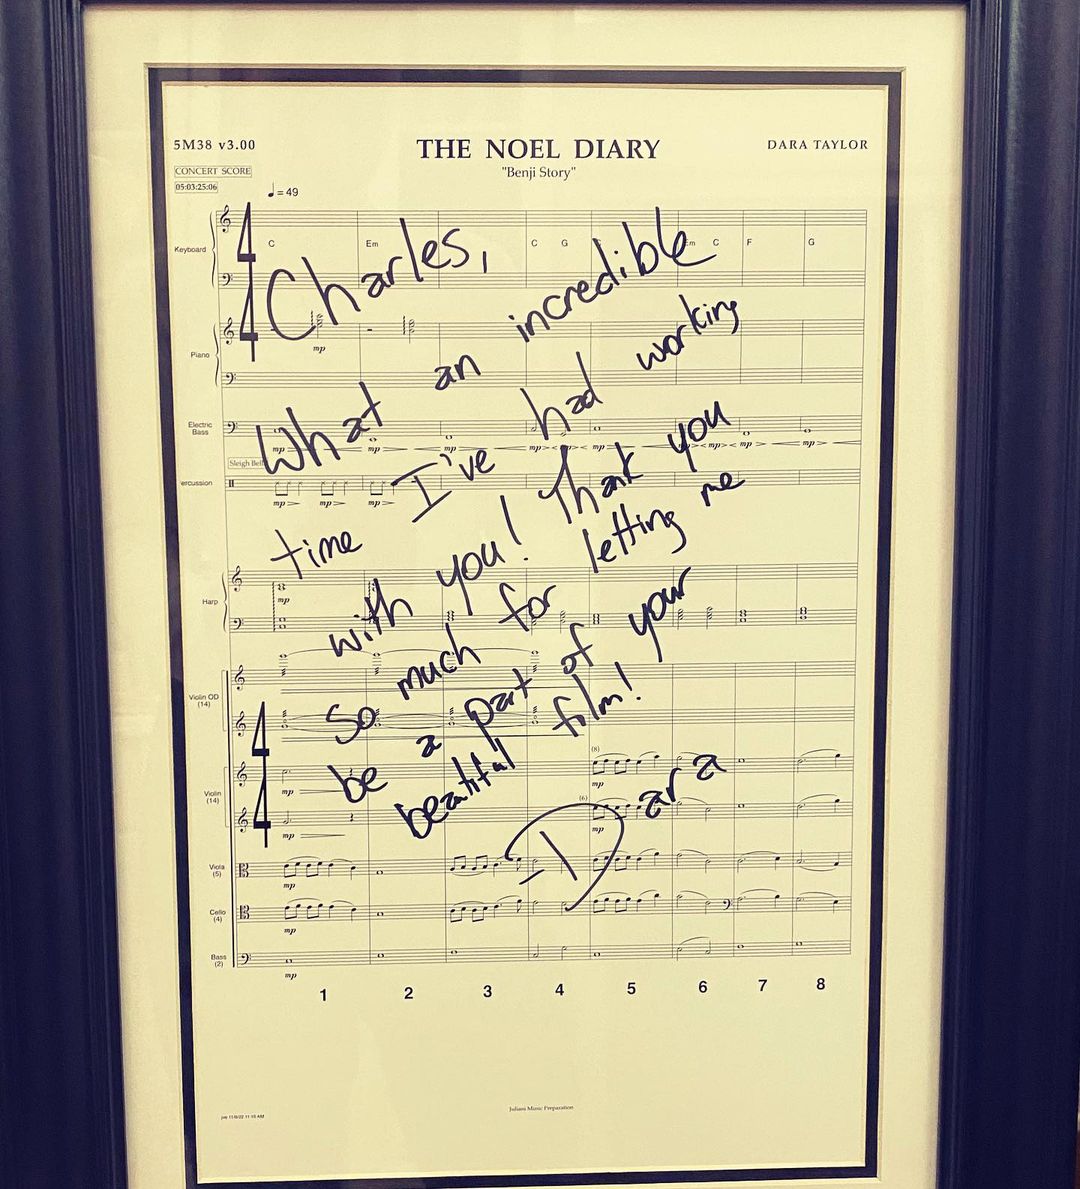 5M38 v3.00
THE NOEL DIARY
DARA TAYLOR
CONCERT SCORE
"Benji Story"
05:03:25:06
♩ = 49
4
4
Keyboard
C Em C G Em C F G
Charles,
Piano
mp
What an incredible
Electric
Bass
mp mp mp mp mp mp mp mp
Sleigh Bell
ercussion
mp mp mp
time I've had working
Harp
mp
with you! Thank you
so much for letting me
Violin OD
(14)
be a part of your
beautiful film!
4
4
Violin
(14)
mp
mp
(8)
mp
(6)
mp
- Dara
Viola
(5)
mp
Cello
(4)
mp
Bass
(2)
mp
1 2 3 4 5 6 7 8
Juliani Music Preparation
11/8/22 11:15 AM